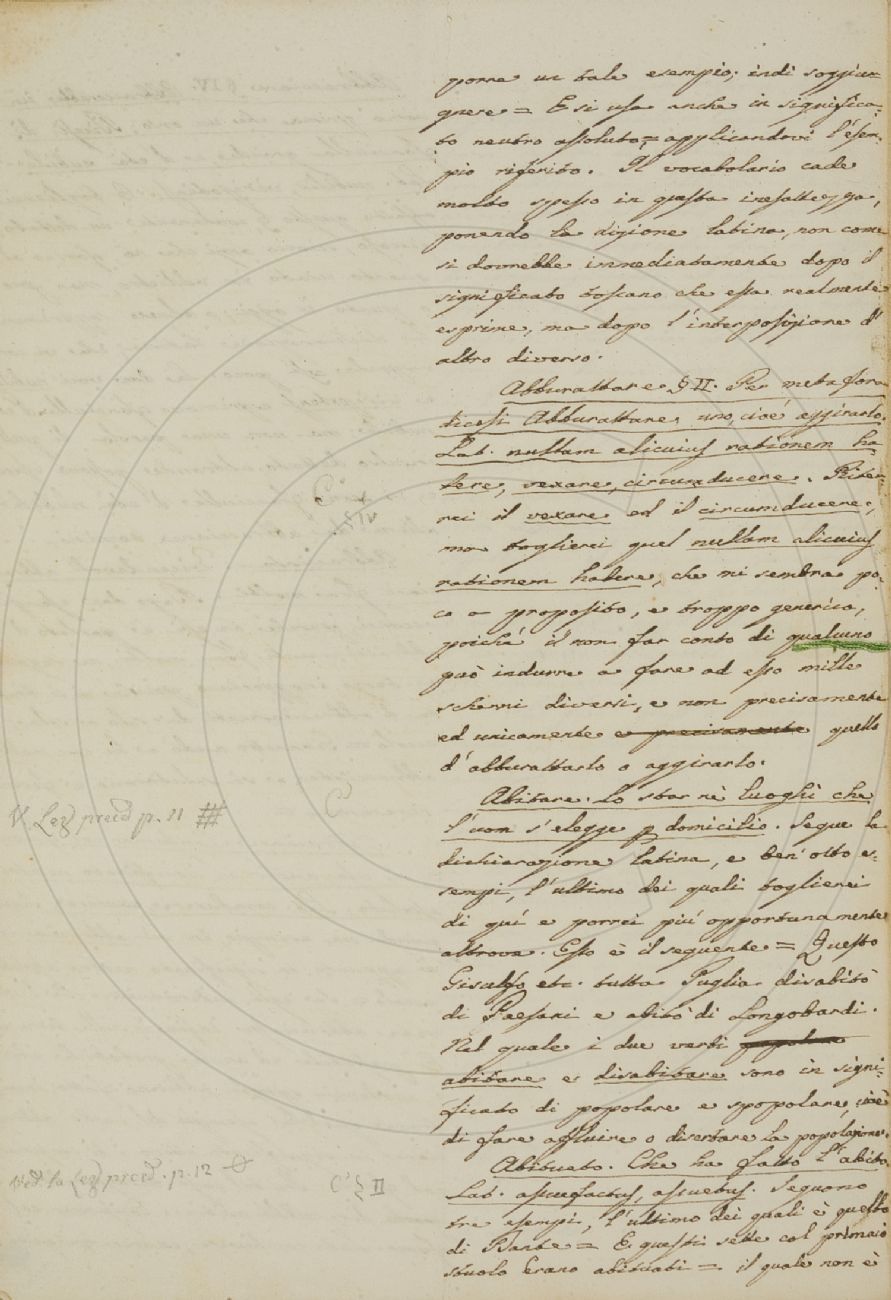 porre un tale esempio; indi soggiun-
gnere = E si usa anche in significa-
to neutro assoluto = applicandovi l'esem-
pio riferito. Il vocabolario cade
molto spesso in questa inesattezza,
ponendo la dizione latina, non come
si dovrebbe immediatamente dopo il
significato toscano che essa realmente
esprime, ma dopo l'interposizione d'
altro diverso.
Abburattare § II. Per metafora
dicesi Abburattare uno, cioè aggirarlo.
Lat. nullam alicuius rationem ha-
bere, vexare, circumducere. Riter-
rei il vexare ed il circumducere,
ma toglierei quel nullam alicuius
rationem habere, che mi sembra po-
co a proposito, e troppo generico,
poiché il non far conto di qualcuno
può indurre a fare ad esso mille
scherni diversi, e non precisamente
ed unicamente e precisamente quello
d'abburattarlo o aggirarlo.
C
§ IV
Abitare. Lo star nè luoghi che
l'uom s'elegge p domicilio. Segue la
dichiarazione latina, e ben otto e-
sempi, l'ultimo dei quali toglierei
di quì e porrei più opportunamente
altrove. Esso è il seguente = Questo
Gisulfo etc. tutta Puglia disabitò
di Paesani e abitò di Longobardi.
Nel quale i due verbi popolare
abitare e disabitare sono in signi-
ficato di popolare e spopolare, cioè
di fare affluire o disertare la popolazione.
V. Lez preced p. 11 #
C
Abituato. Che ha fatto l'abito
Lat. assuefactus, assuetus. Seguono
tre esempi, l'ultimo dei quali è quello
di Dante = E questi sette col primaio
stuolo Erano abituati = il quale non è
Ved. la Lez preced. p. 12
C § II